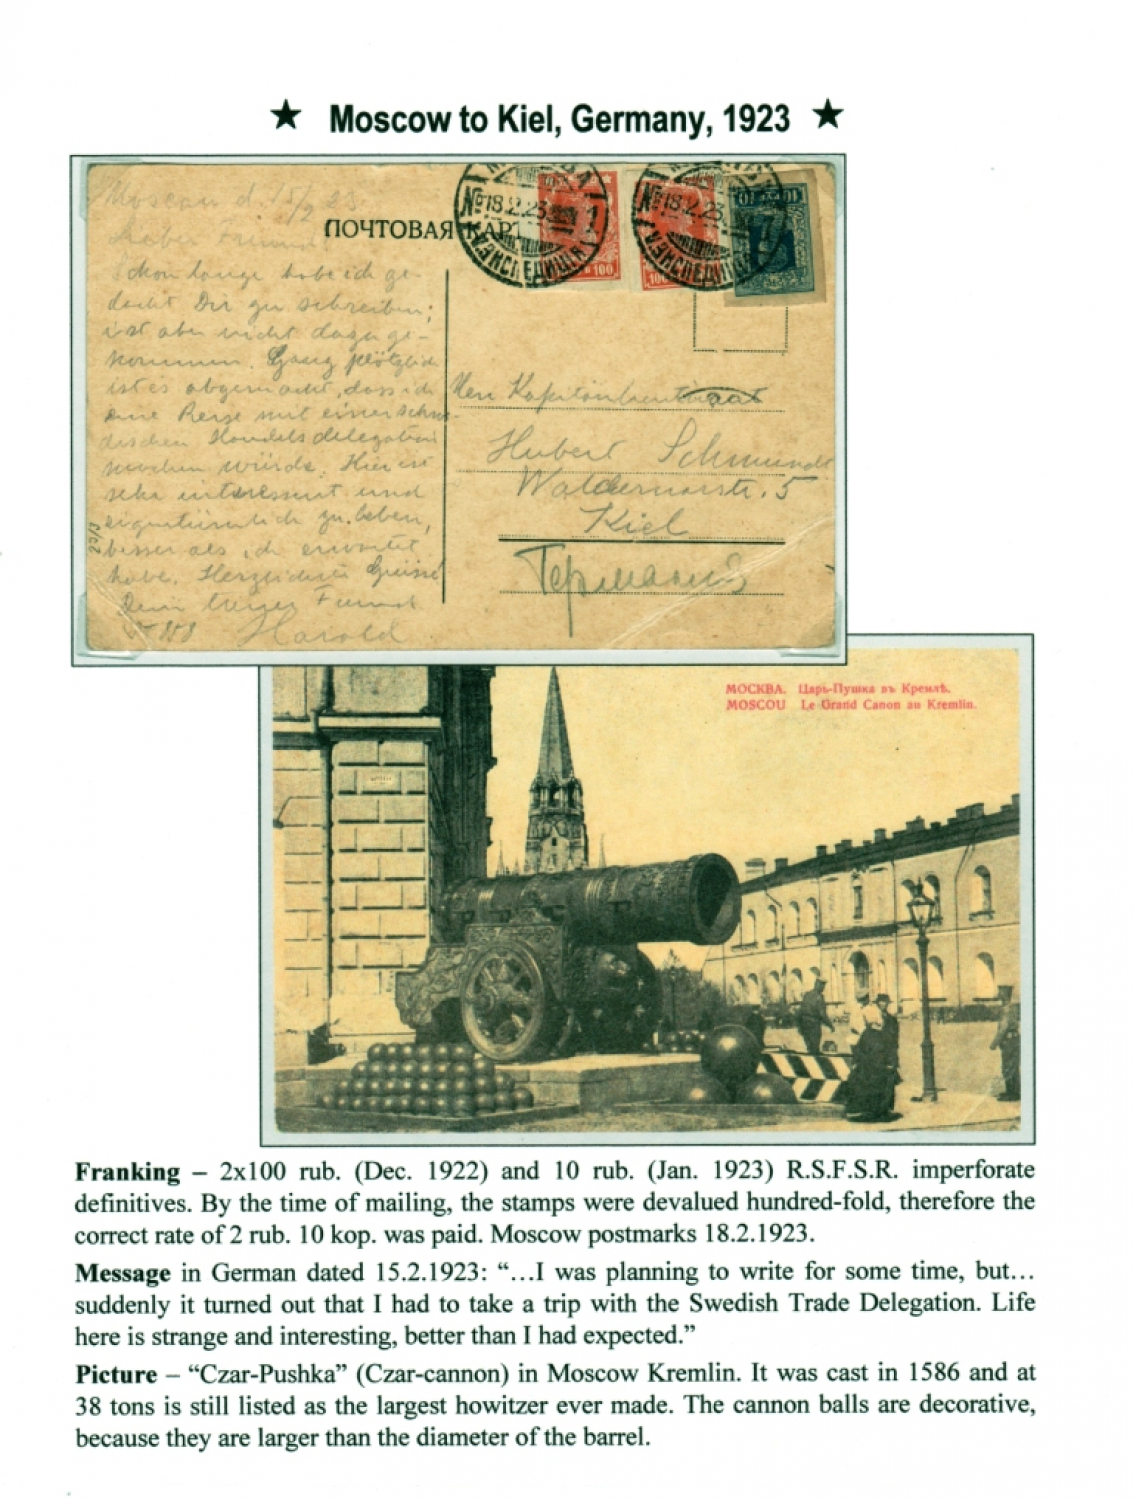 ★ Moscow to Kiel, Germany, 1923 ★
Moscau d. 15/2 23.
Lieber Freund
Schon lange habe ich ge-
dacht Dir zu schreiben;
ist aber nicht dazu ge-
kommen. Ganz plötzlich
ist es abgemacht, dass ich
eine Reise mit einer schwe-
dischen Handelsdelegation
machen würde. Hier ist
sehr interessant und
eigentümlich zu leben,
besser als ich erwartet
habe. Herzlichste Grüsse
Dein treuer Freund
Harold
23/3
ПОЧТОВАЯ КАРТ
МОСКВА
№18.2.23
ЭКСПЕДИЦИЯ
100
№18.2.23
ЭКСПЕДИЦИЯ
100
10 10
Herr Kapitänleutnant
Hubert Schmundt
Waldemarstr. 5
Kiel
Германия
МОСКВА. Царь-Пушка въ Кремлѣ.
MOSCOU Le Grand Canon au Kremlin.
Franking – 2x100 rub. (Dec. 1922) and 10 rub. (Jan. 1923) R.S.F.S.R. imperforate
definitives. By the time of mailing, the stamps were devalued hundred-fold, therefore the
correct rate of 2 rub. 10 kop. was paid. Moscow postmarks 18.2.1923.
Message in German dated 15.2.1923: “…I was planning to write for some time, but…
suddenly it turned out that I had to take a trip with the Swedish Trade Delegation. Life
here is strange and interesting, better than I had expected.”
Picture – “Czar-Pushka” (Czar-cannon) in Moscow Kremlin. It was cast in 1586 and at
38 tons is still listed as the largest howitzer ever made. The cannon balls are decorative,
because they are larger than the diameter of the barrel.